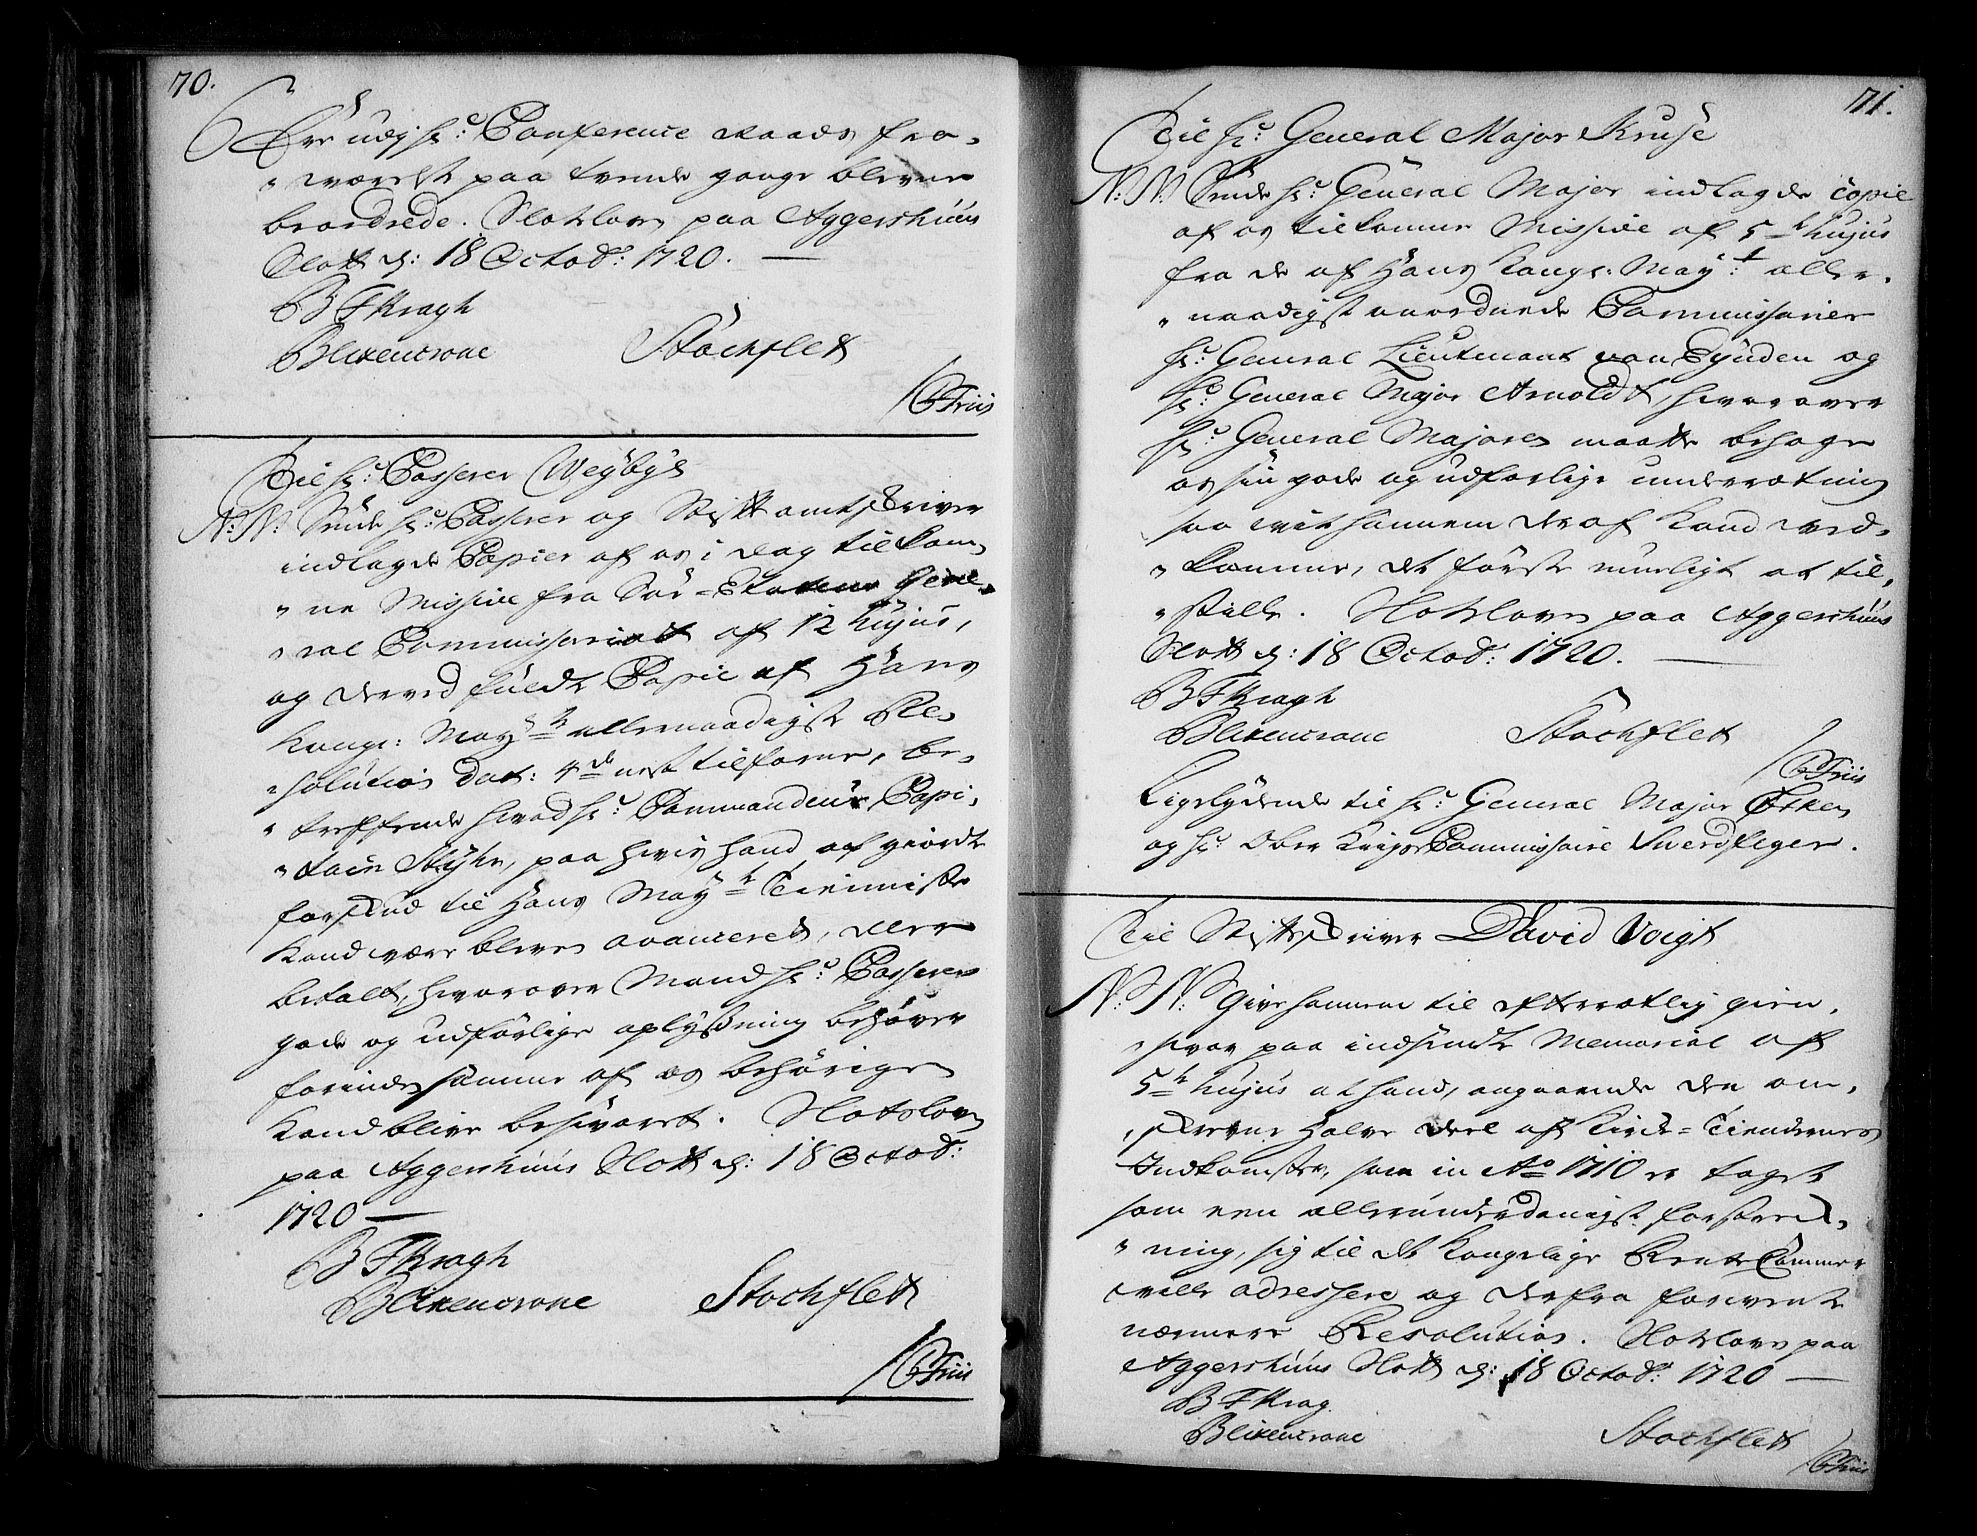 70.
Hr: Conference Raads fra-
værelse paa tvende gange bleven
beordrede. Slotslov paa Aggershuus
Slott d: 18 Octobr: 1720.
B F Kragh
Blixencrone Stochflett
/ C Friis
Til Hr: Casserer Weybye
N: N: Sende Hr: Casserer og Stiftamtskriver
indlagde Copier af os i dag tilkom-
ne Missive fra Søe-Etatens Gene-
ral Commissariat af 12 hujus,
og derved fuldt Copie af Hans
Kongl: Mayts allernaadigste Re-
solution dat: 4de nest tilforne, be-
treffende hvad Hr: Commandeur Capi-
tain paa hvis haand af giorde
forskud til Hans Mayts Tieniste
Kand være bleven avanceret, eller
betalt, hvorover Mand Hr: Casserer
gode og udførlige oplysning behøver
forinden samme af os behørigen
Kand blive besvaret. Slotslov
paa Aggershuus Slott d: 18 Octobr:
1720
B F Kragh
Blixencrone Stochflett
/ C Friis
71.
Til Hr: General Major Kruse
N: N: Sende Hr: General Major indlagde copie
af os tilkomne Missive af 5te hujus
fra de af Hans Kongl: Mayt: aller-
naadigst anordnede Commissarier
Hr: General Lieutenant von Synden og
Hr: General Major Arnoldt, hvorover
Hr: General Majoren maatte behage
os sin gode og udførlige underretning
saa vit hannem deraf Kand ved-
komme, det første mueligt at til-
stille. Slotslov paa Aggershuus
Slott d: 18 Octobr: 1720.
B F Kragh
Blixencrone Stochflett
/ C Friis
Ligelydende til Hr: General Major Etken
og Hr: Ober Krigs Commissaire Swerdfeger.
Til Stiftskriver David Voigt
N: N: Give hannem til efterretlig gien-
svar paa indsendte Memorial af
5te hujus at hand, angaaende den om-
skrevne halve deel af Kirke-Tiendernes
Indkomster, som in Ao 1710 er taget
som een allerunderdanigst forstrek-
ning, sig til det Kongelige Rente Cammer
ville adressere og derfra forvente
nærmere Resolution. Slotslov paa
Aggershuus Slott d: 18 Octobr: 1720
B F Krag
Blixencrone Stochflett
/ C Friis